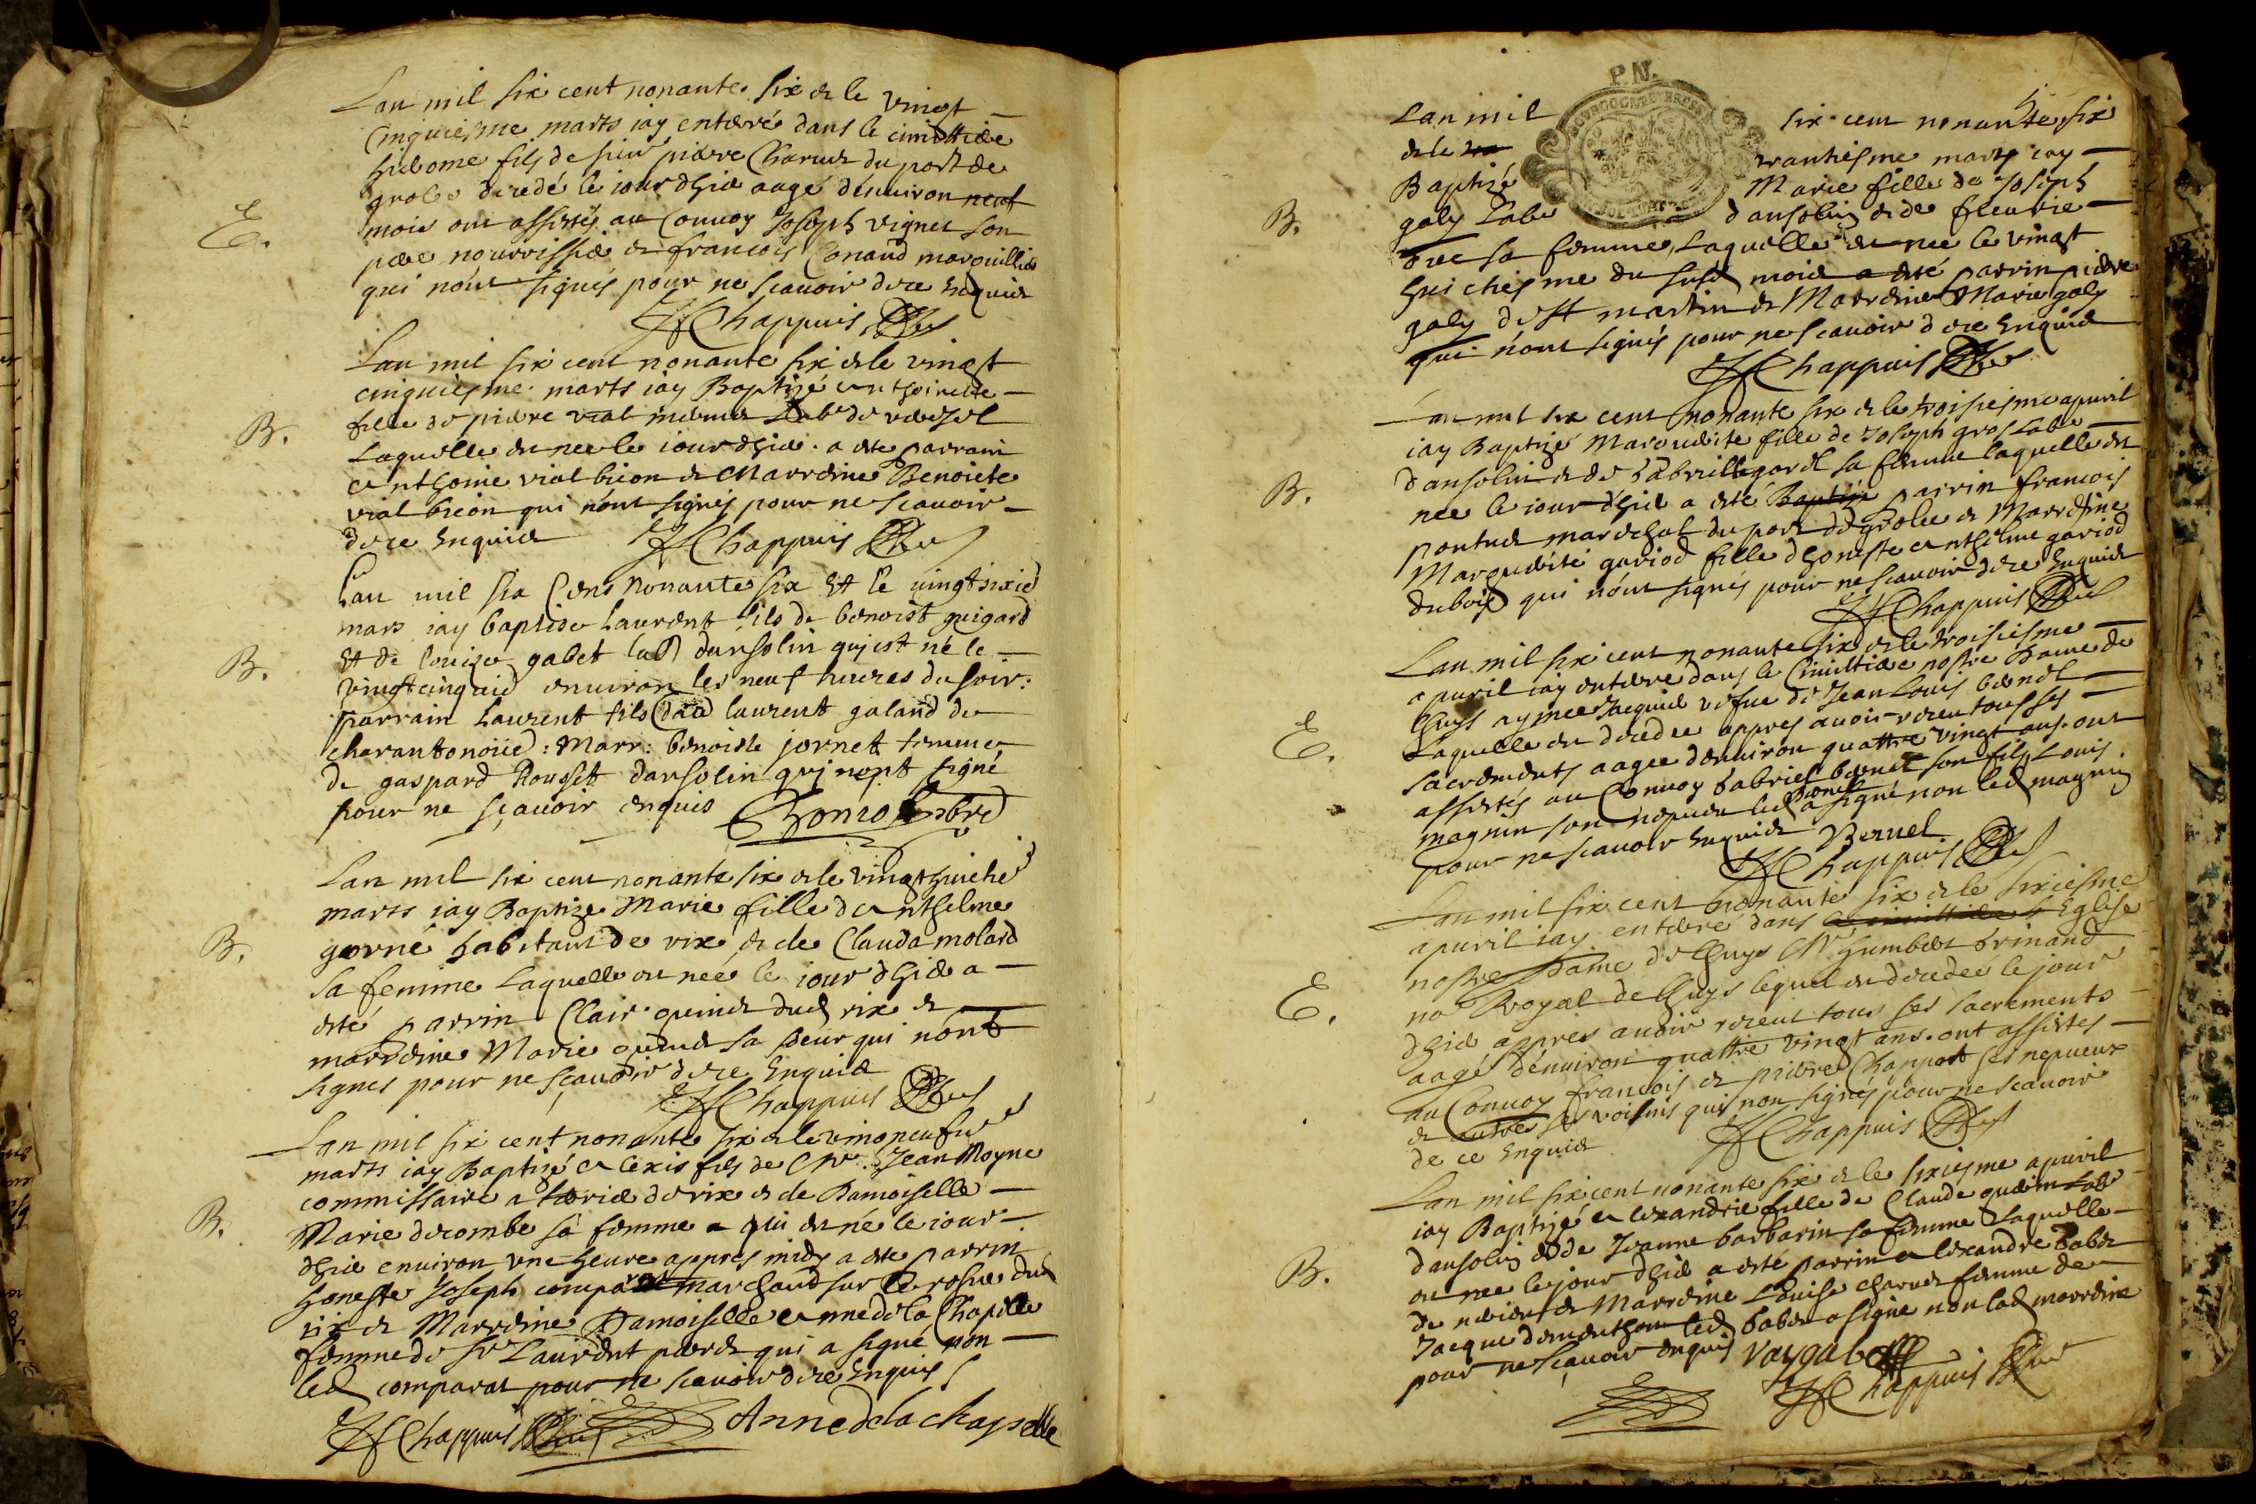 Lan mil six cent nonante six & le vingt
cinquiesme marts iay enterré dans le cimittiere
fils de sieur pierre Charuet du port de
grolee decedé le iour dhier aagé denuiron neuf
mois ont assistés au Conuoy Joseph vignet son
pere nourrissier & francois Conand marouillier
qui nont signés pour ne scauoir de ce Enquis
Chappuis
Lan mil six cent nonante six & le vingt
cinquiesme marts iay Baptizé anthoinette
E.
fille de pierre vial
B.
Laquelle est nee le iour dhier a esté parrain
anthoine vial bicon & Marreine Benoiete
vial bicon qui nont signés pour ne scauoir
de ce Enquis Chappuis
Lan mil six Cens nonante six Et le vingtsixie
mars iay baptise Laurent fils de benoist guigard
Et de louize gabet lab dansolin qui est né le
B.
vingtcinquie enuiron les neuf heures du soir:
parrain Laurent fils laurent galand de
charantonoüe: Marr: benoiste jornet femme
de gaspard Rousset dansolin qui nont signé
pour ne sçauoir enquis
Lan mil six cent nonante six & le vingthuictie
marts iay Baptize Marie fille danthelme
B.
gorné habitant de vix & de Clauda molard
sa femme Laquelle est neé le iour dhier a
esté parrin Clair quinet dud vix &
marreine Marie quinet sa seur qui nont
signes pour ne sçauoir de ce Enquis
Chappuis
Lan mil six cent nonante six & le
marts iay Baptizé alexis fils de Mr. Jean Moyne
commissaire a terrier de vix & de Damoiselle
B.
Marie decombe sa femme qui est né le iour
dhier enuiron vne heure appres midy a esté parrin
honeste Joseph comparat marchand sur le rosne dud
vix & Marreine Damoiselle anne de la Chapelle
femme de Sr Laurent pardet qui a signé non
led comparat pour ne scauoir de ce Enquis
Chappuis Anne de la chapelle
P.N.
Lan mil six cent nonante six
& le trantiesme marts iay
Baptizé Marie fille de Joseph
B.
galy Labr dansolin & de fleurie
sa femme, Laquelle est nee le vingt
huictiesme du susd mois a esté parrin pierre
galy de St martin & Marreine Marie galy
qui nont signés pour ne scauoir de ce Enquis
Chappuis
Lan mil six cent nonante six & le troisiesme apuril
iay Baptizé Marguerite fille de Joseph gros Labr
dansolin & de Gabrielle gardet sa femme laquelle est
B.
nee le iour dhier a esté Baptizé parrin francois
pontuet mareschal du port de grolee & Marreine
Marguerite gariod fille dhoneste anthelme gariod
dubois qui nont signés pour ne scauoir de ce Enquis
Chappuis
Lan mil six cent nonante six & le troisiesme
apuril iay enterre dans le Cimittiere nostre Dame de
Lhuys aymee Jacquier vefue de Jean Louis bernet
E.
Laquelle est decedee appres auoir receu tous ses
sacrements aagee denuiron quattre vingt ans. ont
assistés au Conuoy Gabriel bernet son fils Louis
magnin son nepueu led bernet a signé non led magnin
pour ne scauoir Enquis Bernet
Chappuis
Lan mil six cent nonante six & le sixiesme
apuril iay enterré dans le cimittiere l'Eglise
nostre Dame de Lhuys Mr humbert brinand
E.
no Royal de Lhuys lequel est decedée le jour
dhier appres auoir receut tous ses sacrements
aagé denuiron quattre vingt ans. ont assistes
au Conuoy francois & pierre Chappot ses nepueux
& autres ses voisins qui non signés pour ne scauoir
de ce Enquis Chappuis
Lan mil six cent nonante six & le sixiesme apuril
iay Baptizé alexandrie fille de Claude Labr
dansolin & de Jeanne barbarin sa femme Laquelle
B.
est nee le jour dhier a esté parrin alexandre babet
de & Marreine Louise charuet femme de
Jacque led babet a signé non lad marreine
pour ne scauoir enquis
Chappuis